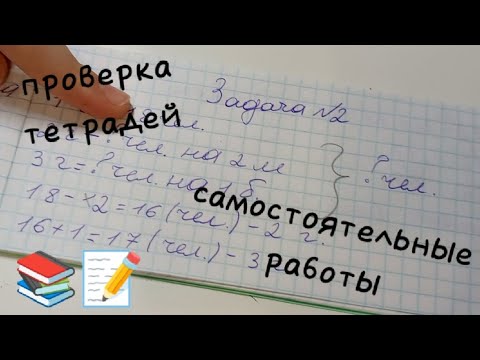 проверка
тетрадей
самостоятельные
работы
Задача №2
чел. на 2 м
3 г = ? чел. на 1 б.
? чел.
18 - 2 = 16 (чел.) - 2 г.
16 + 1 = 17 (чел.) - 3